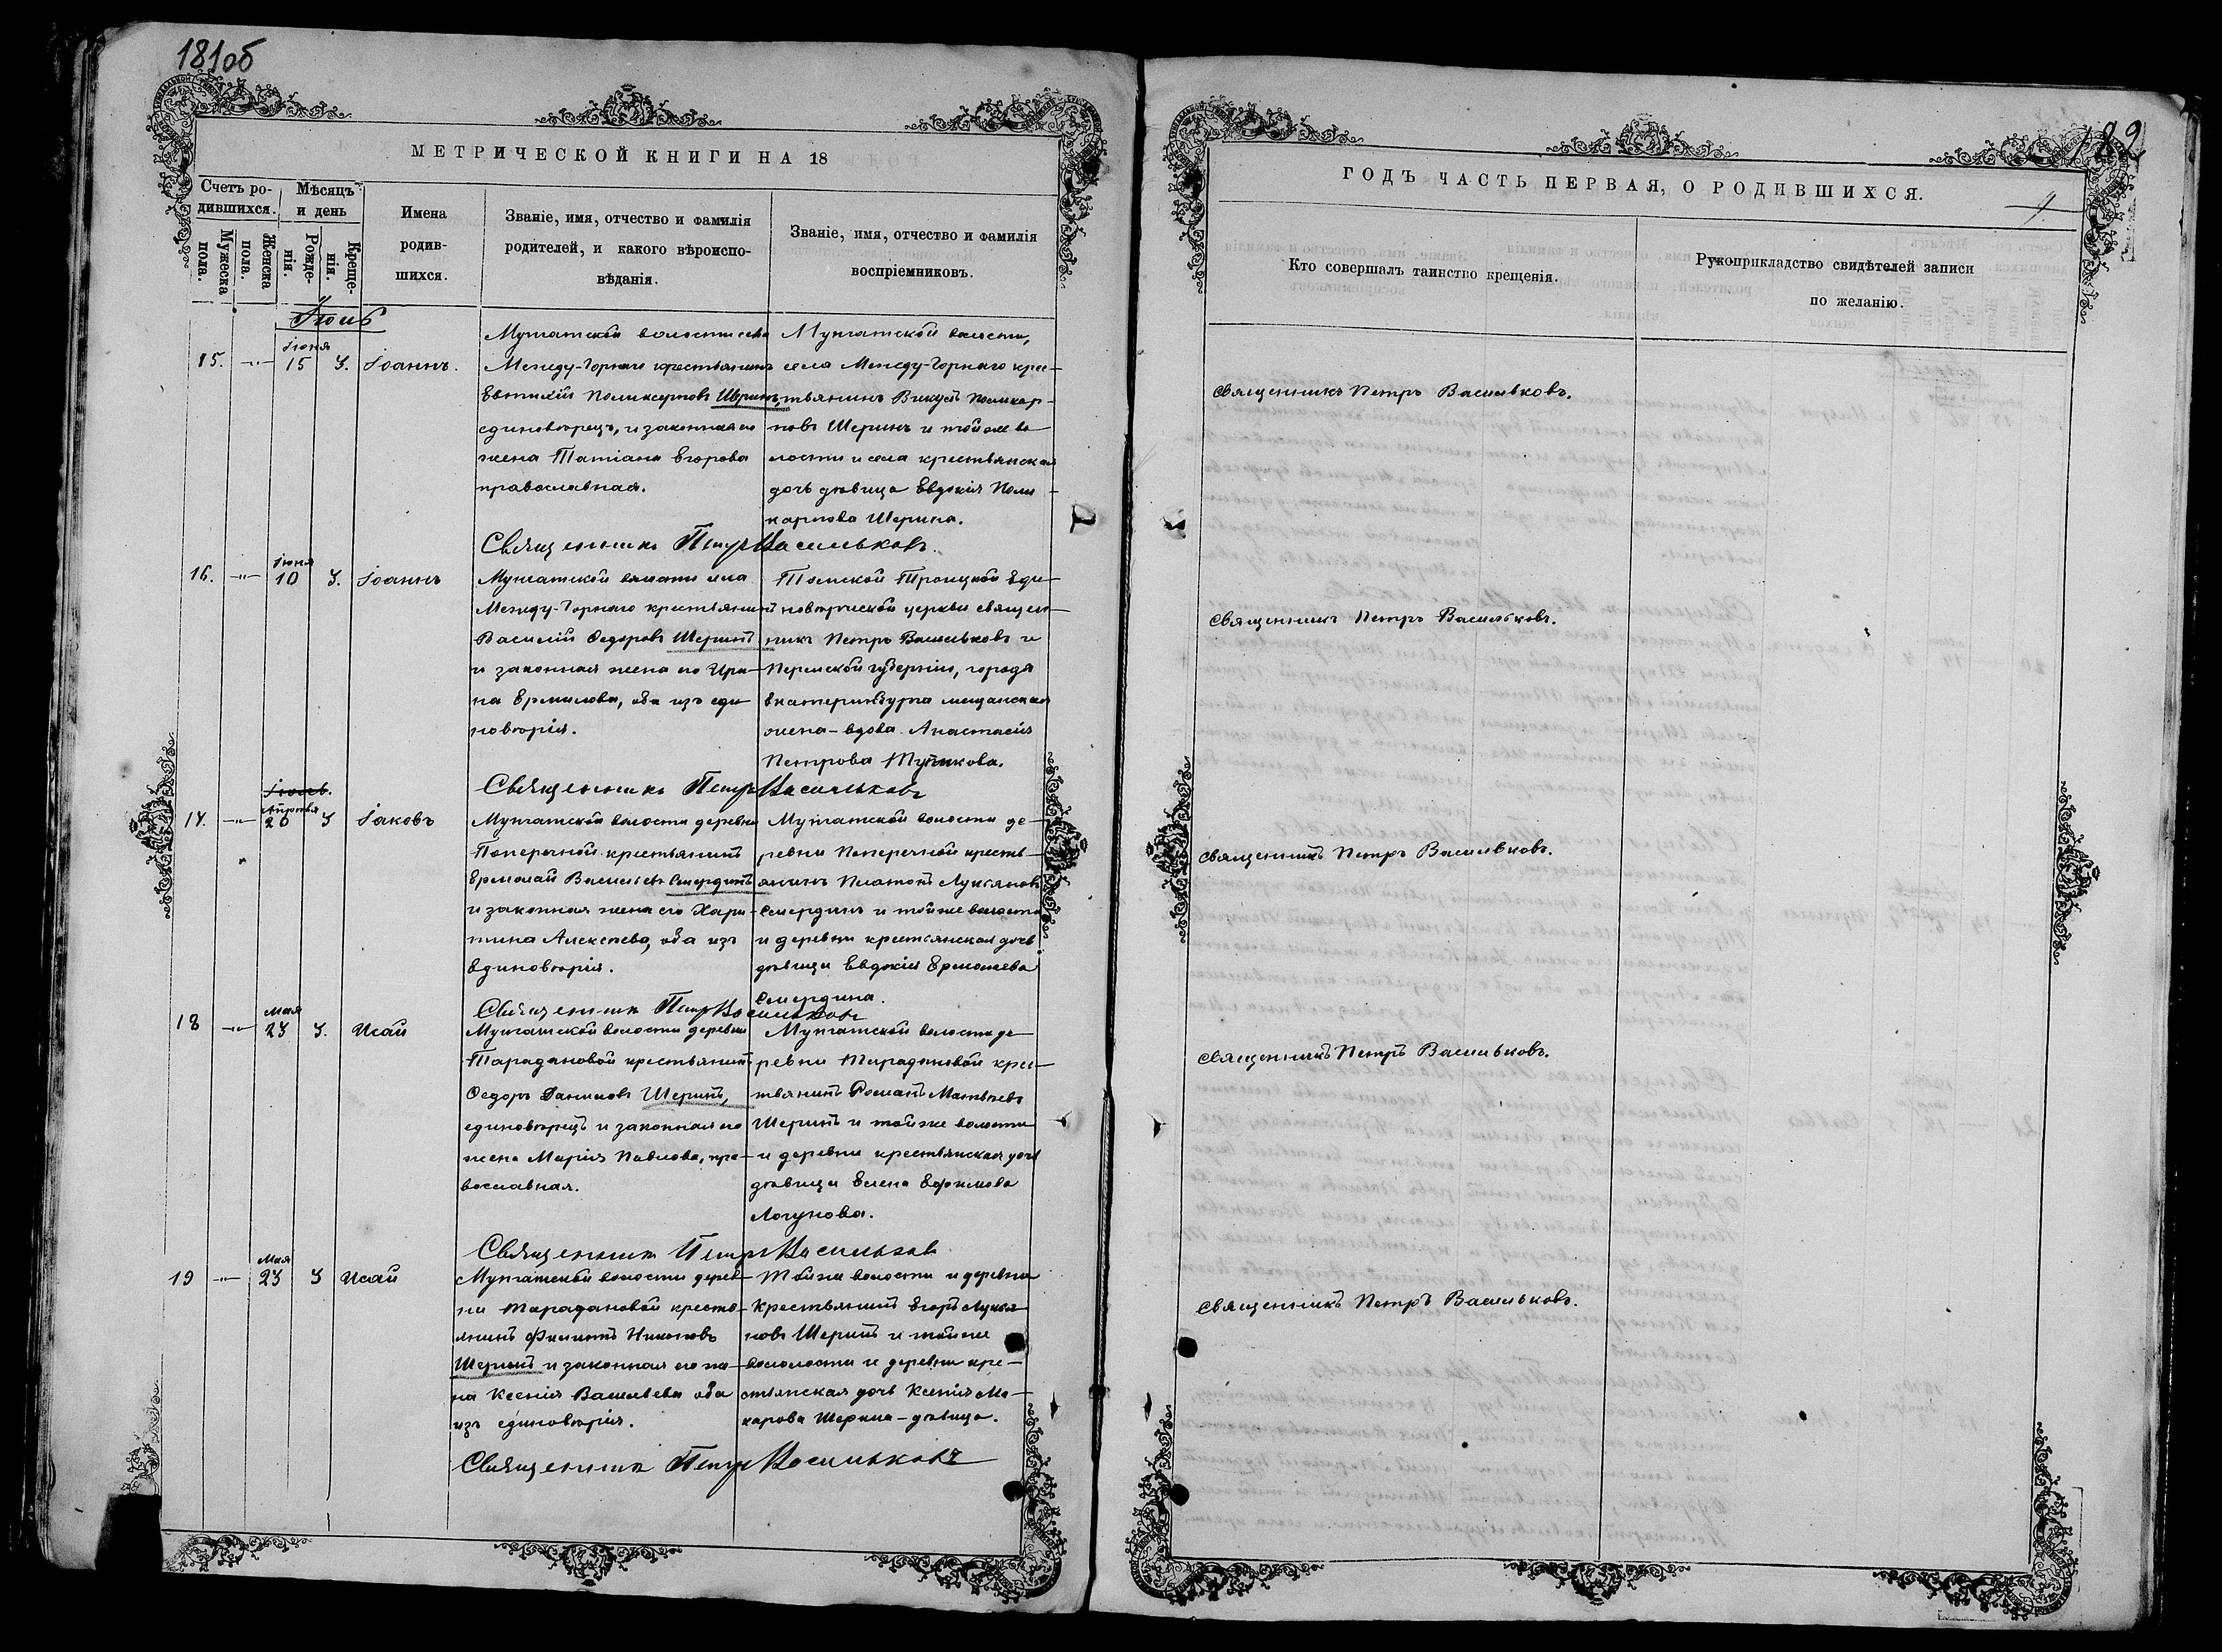 181об
МЕТРИЧЕСКОЙ КНИГИ НА 18
Счетъ ро-
дившихся.
Мужеска пола.
Женска пола.
Мѣсяцъ
и день
Рожде-
нія.
Креще-
нія.
Имена
родив-
шихся.
Званіе, имя, отчество и фамилія
родителей, и какого вѣроиспо-
вѣданія.
Званіе, имя, отчество и фамилія
воспріемниковъ.
Іюль
15. -"- Іюня 15 3. Іоаннъ.
Мунгатской волости села
Между-Горнаго крестьянинъ
Евтихій Поликарповъ Шеринъ,
единовѣрецъ, и законная его
жена Татіана Егорова
православная.
Мунгатской волости,
села Между-Горнаго крес-
тьянинъ Викулъ Поликар-
повъ Шеринъ и той же во
лости и села крестьянская
дочь дѣвица Евдокія Поли-
карпова Шерина.
Священникъ Петръ Васильковъ.
16. -"- Іюня 10 3. Іоаннъ
Мунгатской волости села
Между-Горнаго крестьянинъ
Василій Федоровъ Шеринъ
и законная жена его Ири-
на Ермилова, оба изъ еди
новѣрія.
Томской Троицкой Еди-
новѣрческой церкви священ-
никъ Петръ Васильковъ и
Пермской губерніи, города
Екатеринбурга мещанская
жена-вдова Анастасія
Петрова Тупикова.
Священникъ Петръ Васильковъ
Іюль.
17. -"- Апрѣля 20 3 Іаковъ
Мунгатской волости деревни
Поперечной крестьянинъ
Ермолай Васильевъ Смердинъ
и законная жена его Хари-
тина Алексѣева, оба изъ
Единовѣрія.
Мунгатской волости де-
ревни Поперечной кресть-
янинъ Платонъ Лукіановъ
Смердинъ и той же волости
и деревни крестьянская дочь
дѣвица Евдокія Ермолаева
Смердина.
Священникъ Петръ Васильковъ
18 -"- Мая 23 3. Исаій
Мунгатской волости деревни
Тарадановой крестьянинъ
Федоръ Даниловъ Шеринъ,
единовѣрецъ и законная его
жена Марія Павлова, пра-
вославная.
Мунгатской волости де
ревни Тарадановой крес-
тьянинъ Романъ Матвѣевъ
Шеринъ и той же волости
и деревни крестьянская дочь
дѣвица Елена Ефимова
Логунова.
Священникъ Петръ Васильковъ
19 -"- Мая 23 3 Исаій
Мунгатской волости дерев-
ни Тарадановой кресть-
янинъ Филиппъ Никоновъ
Шеринъ и законная его же-
на Ксенія Васильева оба
изъ единовѣрія.
Той же волости и деревни
Крестьянинъ Егоръ Лукья-
новъ Шеринъ и той же
волости и деревни кре-
стьянская дочь Ксенія Ма-
карова Шерина-дѣвица.
Священникъ Петръ Васильковъ
182
9
ГОДЪ ЧАСТЬ ПЕРВАЯ, О РОДИВШИХСЯ.
Кто совершалъ таинство крещенія.
Рукоприкладство свидѣтелей записи
по желанію.
Священникъ Петръ Васильковъ.
Священникъ Петръ Васильковъ.
Священникъ Петръ Васильковъ.
Священникъ Петръ Васильковъ.
Священникъ Петръ Васильковъ.